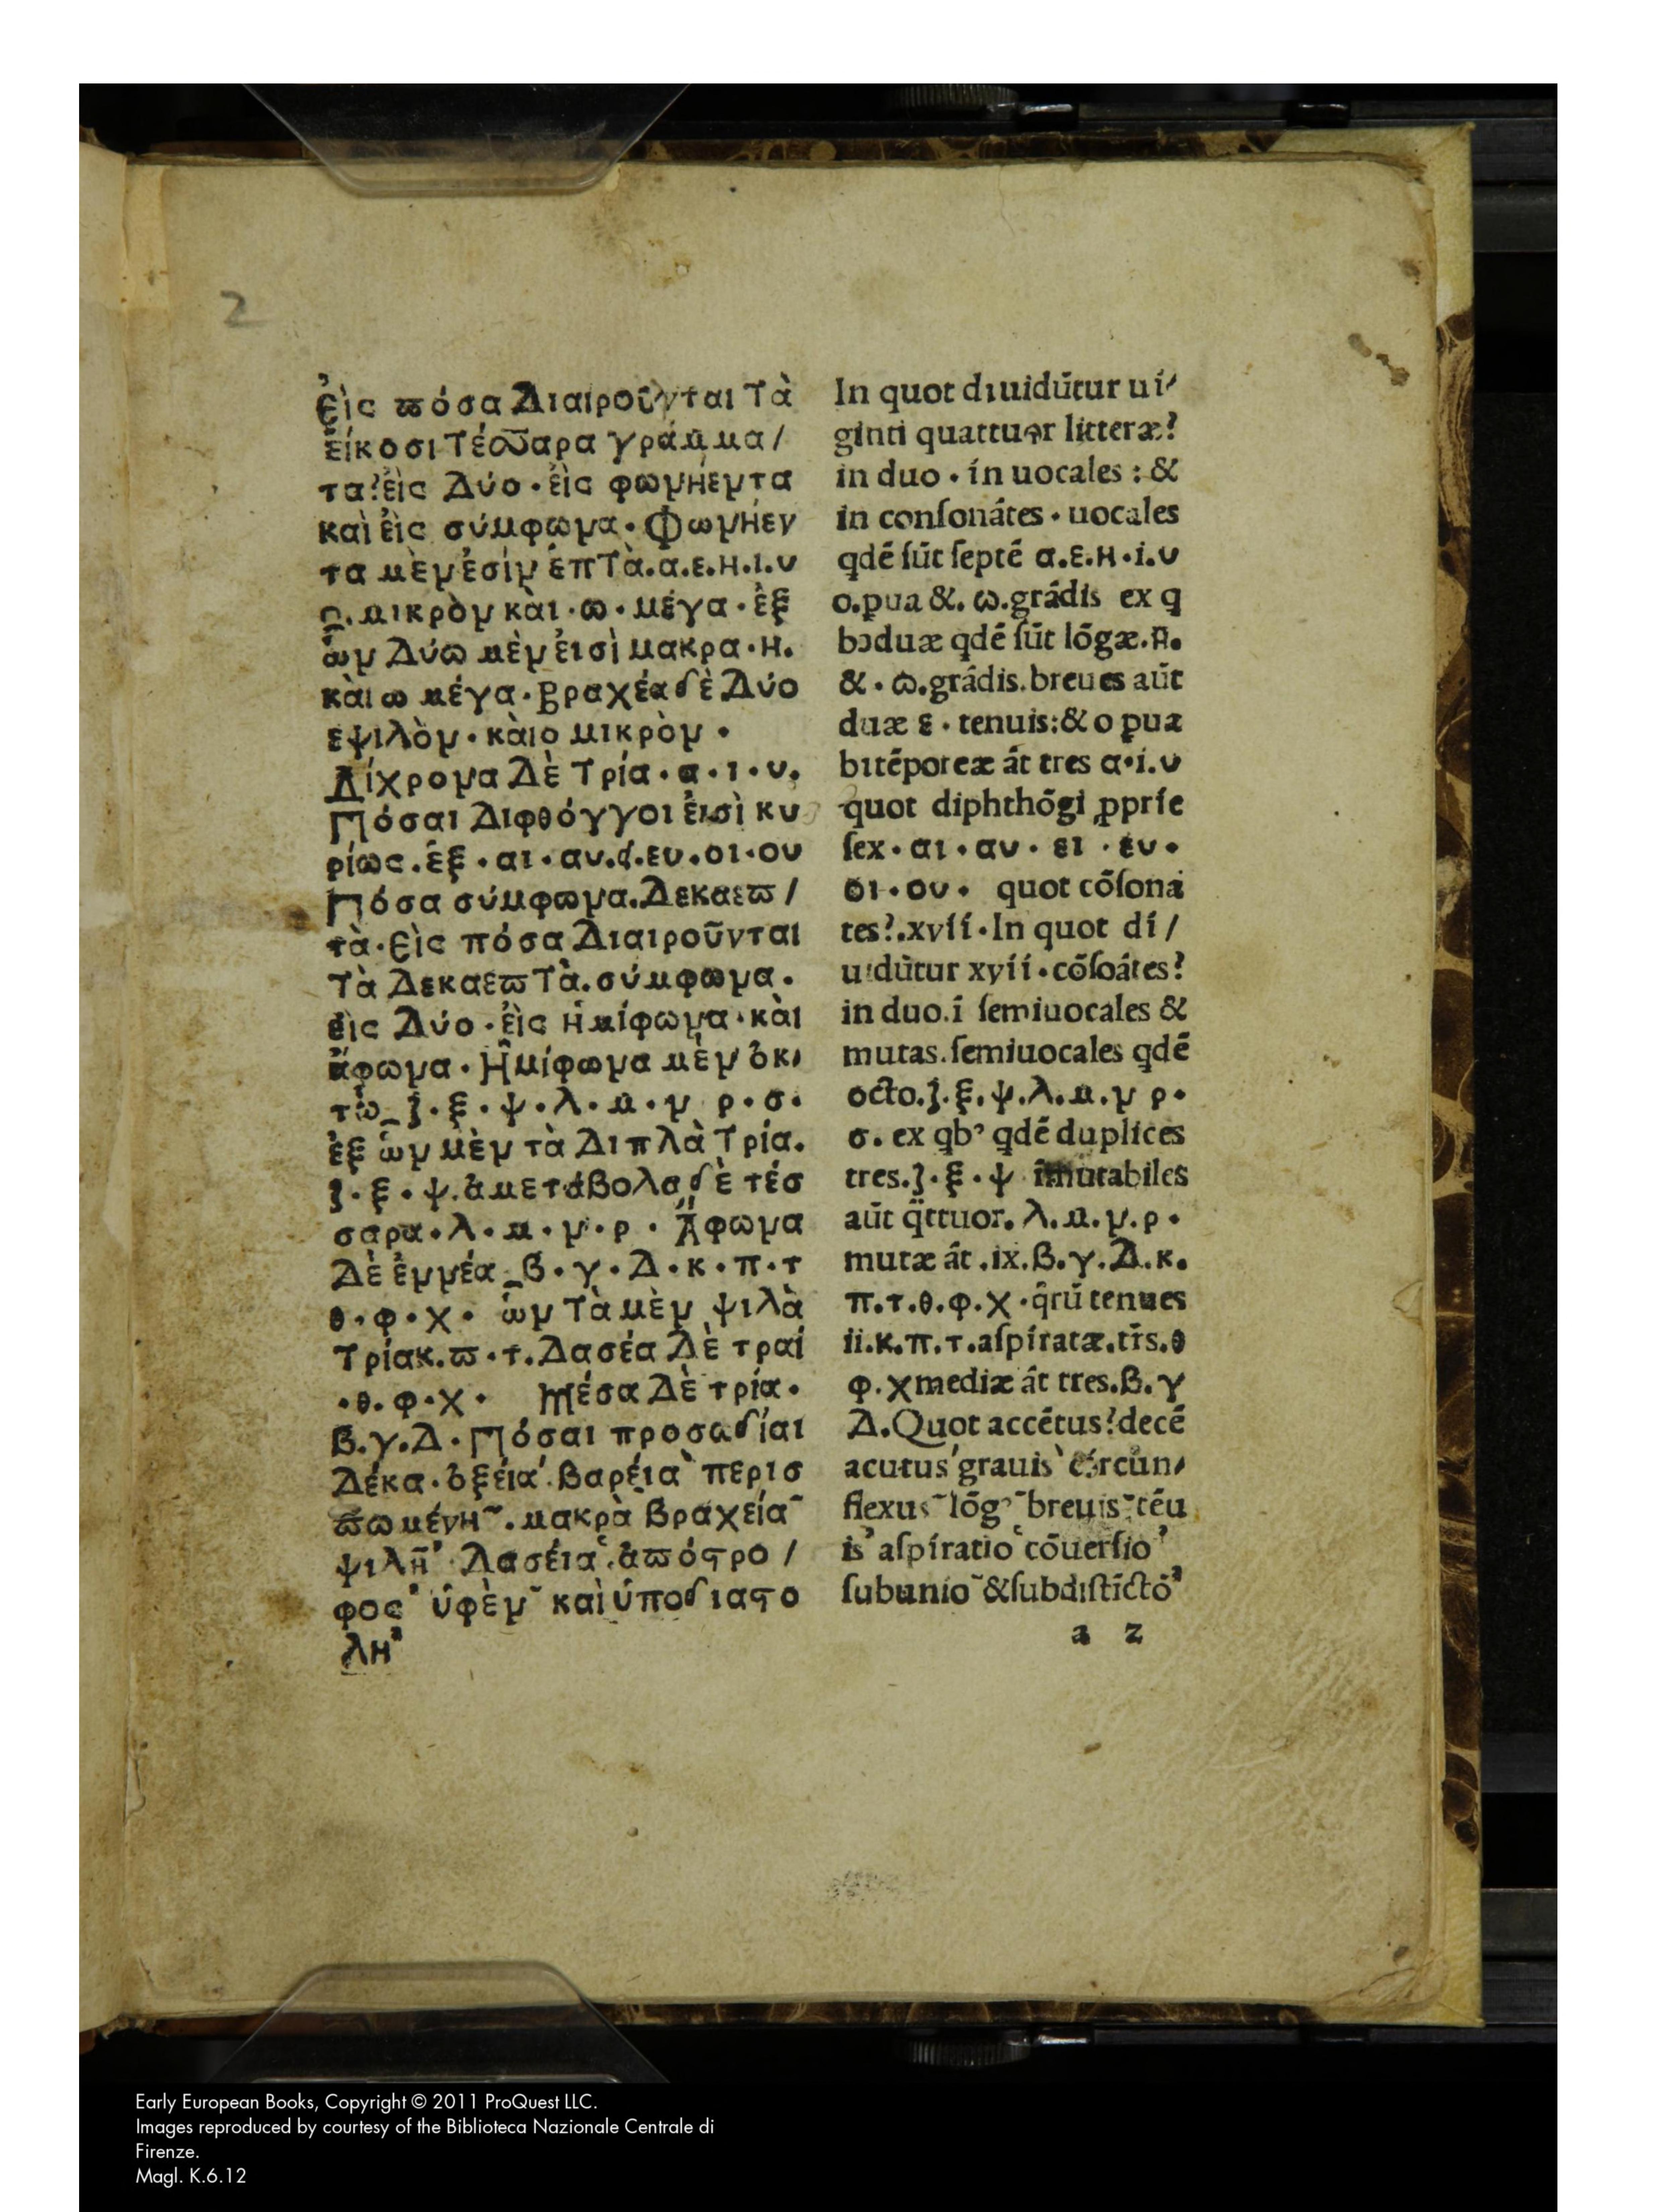 2
ἐὶς ϖόσα Διαιροῦνται Τὰ
ἐίκοσι Τέσσαρα γράμμα/
τα?ἐὶς Δύο·ἐὶς φωνήεντα
καὶ ἐὶς σύμφωνα·Φωνήεν
τα μὲν ἐσίν ἑπΤὰ.α.ε.η.ι.υ
ο.μικρὸν κὰι·ω·μέγα·ἐξ
ὡν Δύω μὲν ἐισὶ μακρα·η.
κὰι ω μέγα·Βραχέα δὲ Δύο
εψιλὸν·κὰιο μικρὸν·
Δίχρονα Δὲ Τρία·α·ι·υ.
Πόσαι Διφθόγγοι ἐισὶ κυ
ρίως.ἑξ·αι·αυ.ει.ευ.οι·ου
Πόσα σύμφωνα.Δεκαεϖ/
τὰ·Εὶς πόσα Διαιροῦνται
Τὰ ΔεκαεϖΤὰ.σύμφωνα.
ἐὶς Δύο·ἐὶς ἡμίφωνα·κὰι
ἄφωνα·Ἡμίφωνα μὲν ὀκ
τὼ ȝ·ξ·ψ·λ·μ·ν ρ·σ·
ἐξ ὡν μὲν τὰ Διπλὰ Τρία.
ȝ·ξ·ψ.ἀμετάβολα δὲ τέσ
σαρα·λ·μ·ν·ρ·Ἄφωνα
Δὲ ἐννέα β·γ·Δ·κ·π·τ
θ·φ·χ· ὡν Τὰ μὲν ψιλὰ
Τρίακ.ϖ·τ.Δασέα Δὲ τραί
·θ·φ·χ· Μέσα Δὲ τρία·
β.γ.Δ·Πόσαι προσωδίαι
Δέκα·ὀξέια´.βαρέια` περισ
ϖωμένη~.μακρὰ βραχεία˘
ψιλῆ᾿ Δασέια῾.ἀϖόϛρο/
φος᾿ ὑφὲν˘ καὶ ὑποδιαϛο
λη᾿
In quot diuidūtur ui
ginti quattuor litteræ?
in duo·in uocales:&
in conſonātes·uocales
qdē ſūt ſeptē α.ε.η·i.υ
o.pua &.ω.grādis ex q
boduæ qdē ſūt lōgæ.η.
&·ω.grādis.breues aūt
duæ ε·tenuis:& o pua
bitēporeæ āt tres α·i.υ
quot diphthōgi ꝓprie
ſex·αι·αυ·ει·ευ·
οι·ου· quot cōſona
tes?.xvíí·In quot dí/
uidūtur xyíí·cōſoātes?
in duo.ī ſemiuocales &
mutas.ſemiuocales qdē
octo.ȝ·ξ.ψ.λ.μ.ν ρ·
σ. ex qbꝰ qdē duplices
tres.ȝ·ξ·ψ īmutabiles
aūt q̄ttuor.λ.μ.ν.ρ·
mutæ āt.ix.β.γ.Δ.κ.
π.τ.θ.φ.χ·q̄rū tenues
ii.κ.π.τ.aſpiratæ.tr̄s.θ
φ.χ mediæ āt tres.β.γ
Δ.Quot accētus?decē
acutus´grauis` círcun
flexus~lōgꝰ¯breuis˘tēu
is᾿ aſpíratio῾cōuerſio᾿
ſubunío˘&ſubdiſtīctō᾿
a z
Early European Books, Copyright © 2011 ProQuest LLC.
Images reproduced by courtesy of the Biblioteca Nazionale Centrale di
Firenze.
Magl. K.6.12